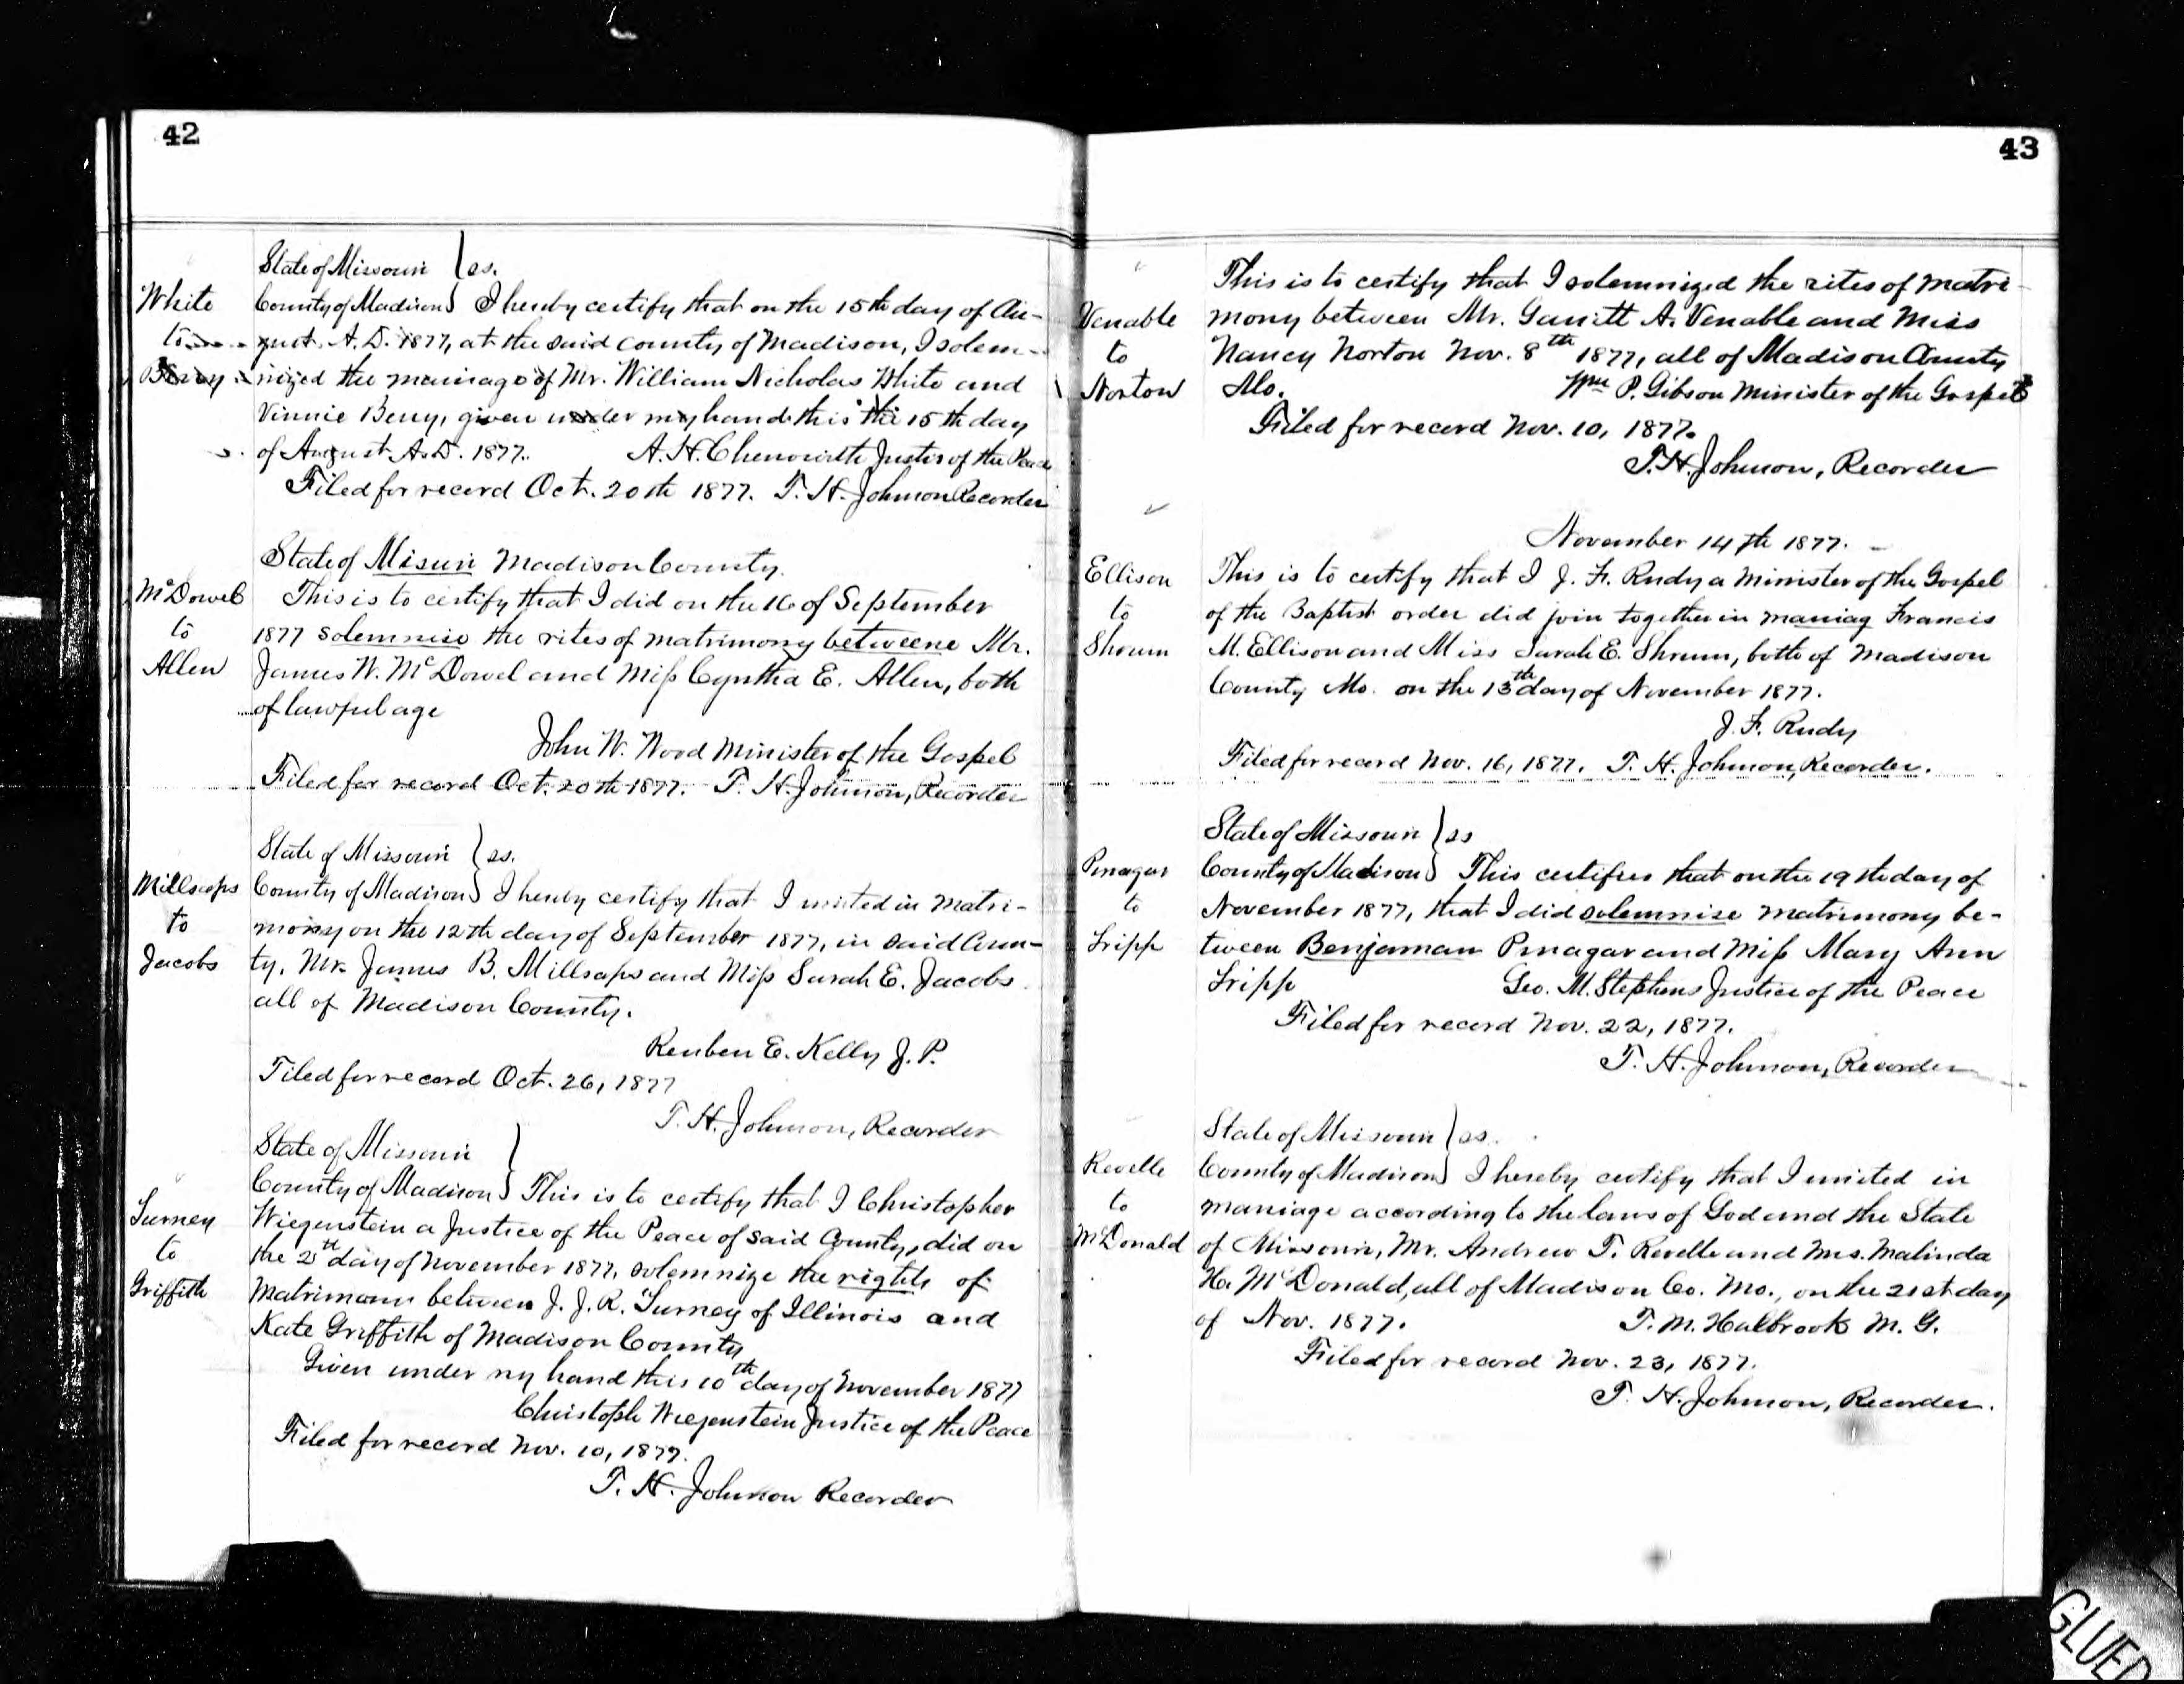 42
State of Missouri } ss.
White
County of Madison } I hereby certify that on the 15th day of Au-
to
gust. A.D. 1877, at the said county of Madison, I solem-
Berry
nized the marriage of Mr. William Nicholas White and
Vinnie Berry, given under my hand this the 15th day
of August A.D. 1877. A. H. Chenowith Justis of the Peace
Filed for record Oct. 20th 1877. T. H. Johnson Recorder
State of Misuri Madison County.
McDowel
This is to certify that I did on the 16 of September
to
1877 solemnise the rites of matrimony betweene Mr.
Allen
James W. McDowel and Miss Cyntha E. Allen, both
of lawful age
John W. Wood Minister of the Gospel
Filed for record Oct. 20th 1877. T. H. Johnson, Recorder
State of Missouri } ss.
Millsaps
County of Madison } I hereby certify that I united in matri-
to
mony on the 12th day of September 1877, in said Coun-
Jacobs
ty, Mr. James B. Millsaps and Miss Sarah E. Jacobs
all of Madison County.
Reuben E. Kelly J. P.
Filed for record Oct. 26, 1877
T. H. Johnson, Recorder
State of Missouri }
County of Madison } This is to certify that I Christopher
Surney
Wiegenstein a Justice of the Peace of said County, did on
to
the day of November 1877, solemnize the rights of
Griffith
Matrimony between J. J. R. Surney of Illinois and
Kate Griffith of Madison County
Given under my hand this 10th day of November 1877
Christoph Wiegenstein Justice of the Peace
Filed for record Nov. 10, 1877.
T. H. Johnson Recorder
43
This is to certify that I solemnized the rites of matri-
Venable
mony between Mr. Garritt A. Venable and Miss
to
Nancy Norton Nov. 8th 1877, all of Madison County
Norton
Mo. Wm P. Gibson Minister of the Gospel
Filed for record Nov. 10, 1877.
T. H. Johnson, Recorder
November 14th 1877.
Ellison
This is to certify that I J. F. Rudy a Minister of the Gospel
to
of the Baptist order did join together in marriag Francis
Shrum
M. Ellison and Miss Sarah E. Shrum, both of Madison
County Mo. on the 13th day of November 1877.
J. F. Rudy
Filed for record Nov. 16, 1877. T. H. Johnson, Recorder.
State of Missouri } ss
Pinagar
County of Madison } This certifies that on the 19th day of
to
November 1877, that I did solemnise matrimony be-
Tripp
tween Benjaman Pinagar and Miss Mary Ann
Tripp Geo. M. Stephens Justice of the Peace
Filed for record Nov. 22, 1877.
T. H. Johnson, Recorder
State of Missouri } ss.
Revelle
County of Madison } I hereby certify that I united in
to
marriage according to the laws of God and the State
McDonald
of Missouri, Mr. Andrew T. Revelle and Mrs. Malinda
H. McDonald, all of Madison Co. Mo., on the 21st day
of Nov. 1877. T. M. Halbrook M. G.
Filed for record Nov. 23, 1877.
T. H. Johnson, Recorder.
GLUED